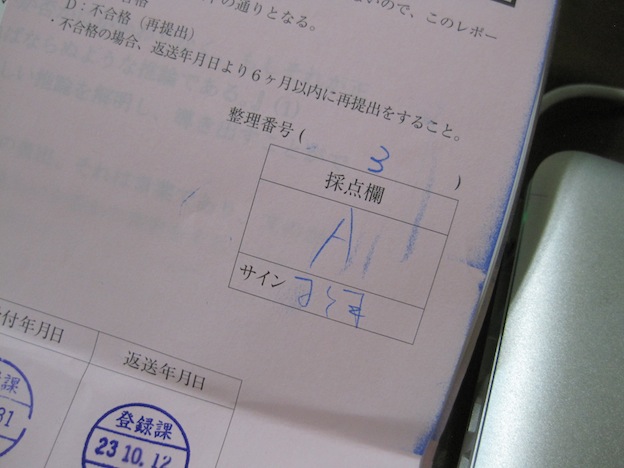 合格
の通りとなる。
ないので、このレポー
D：不合格（再提出）
・不合格の場合、返送年月日より６ヶ月以内に再提出をすること。
整理番号 ( 3 )
採点欄
A
サイン
付年月日
返送年月日
課
31
登録課
23.10.12